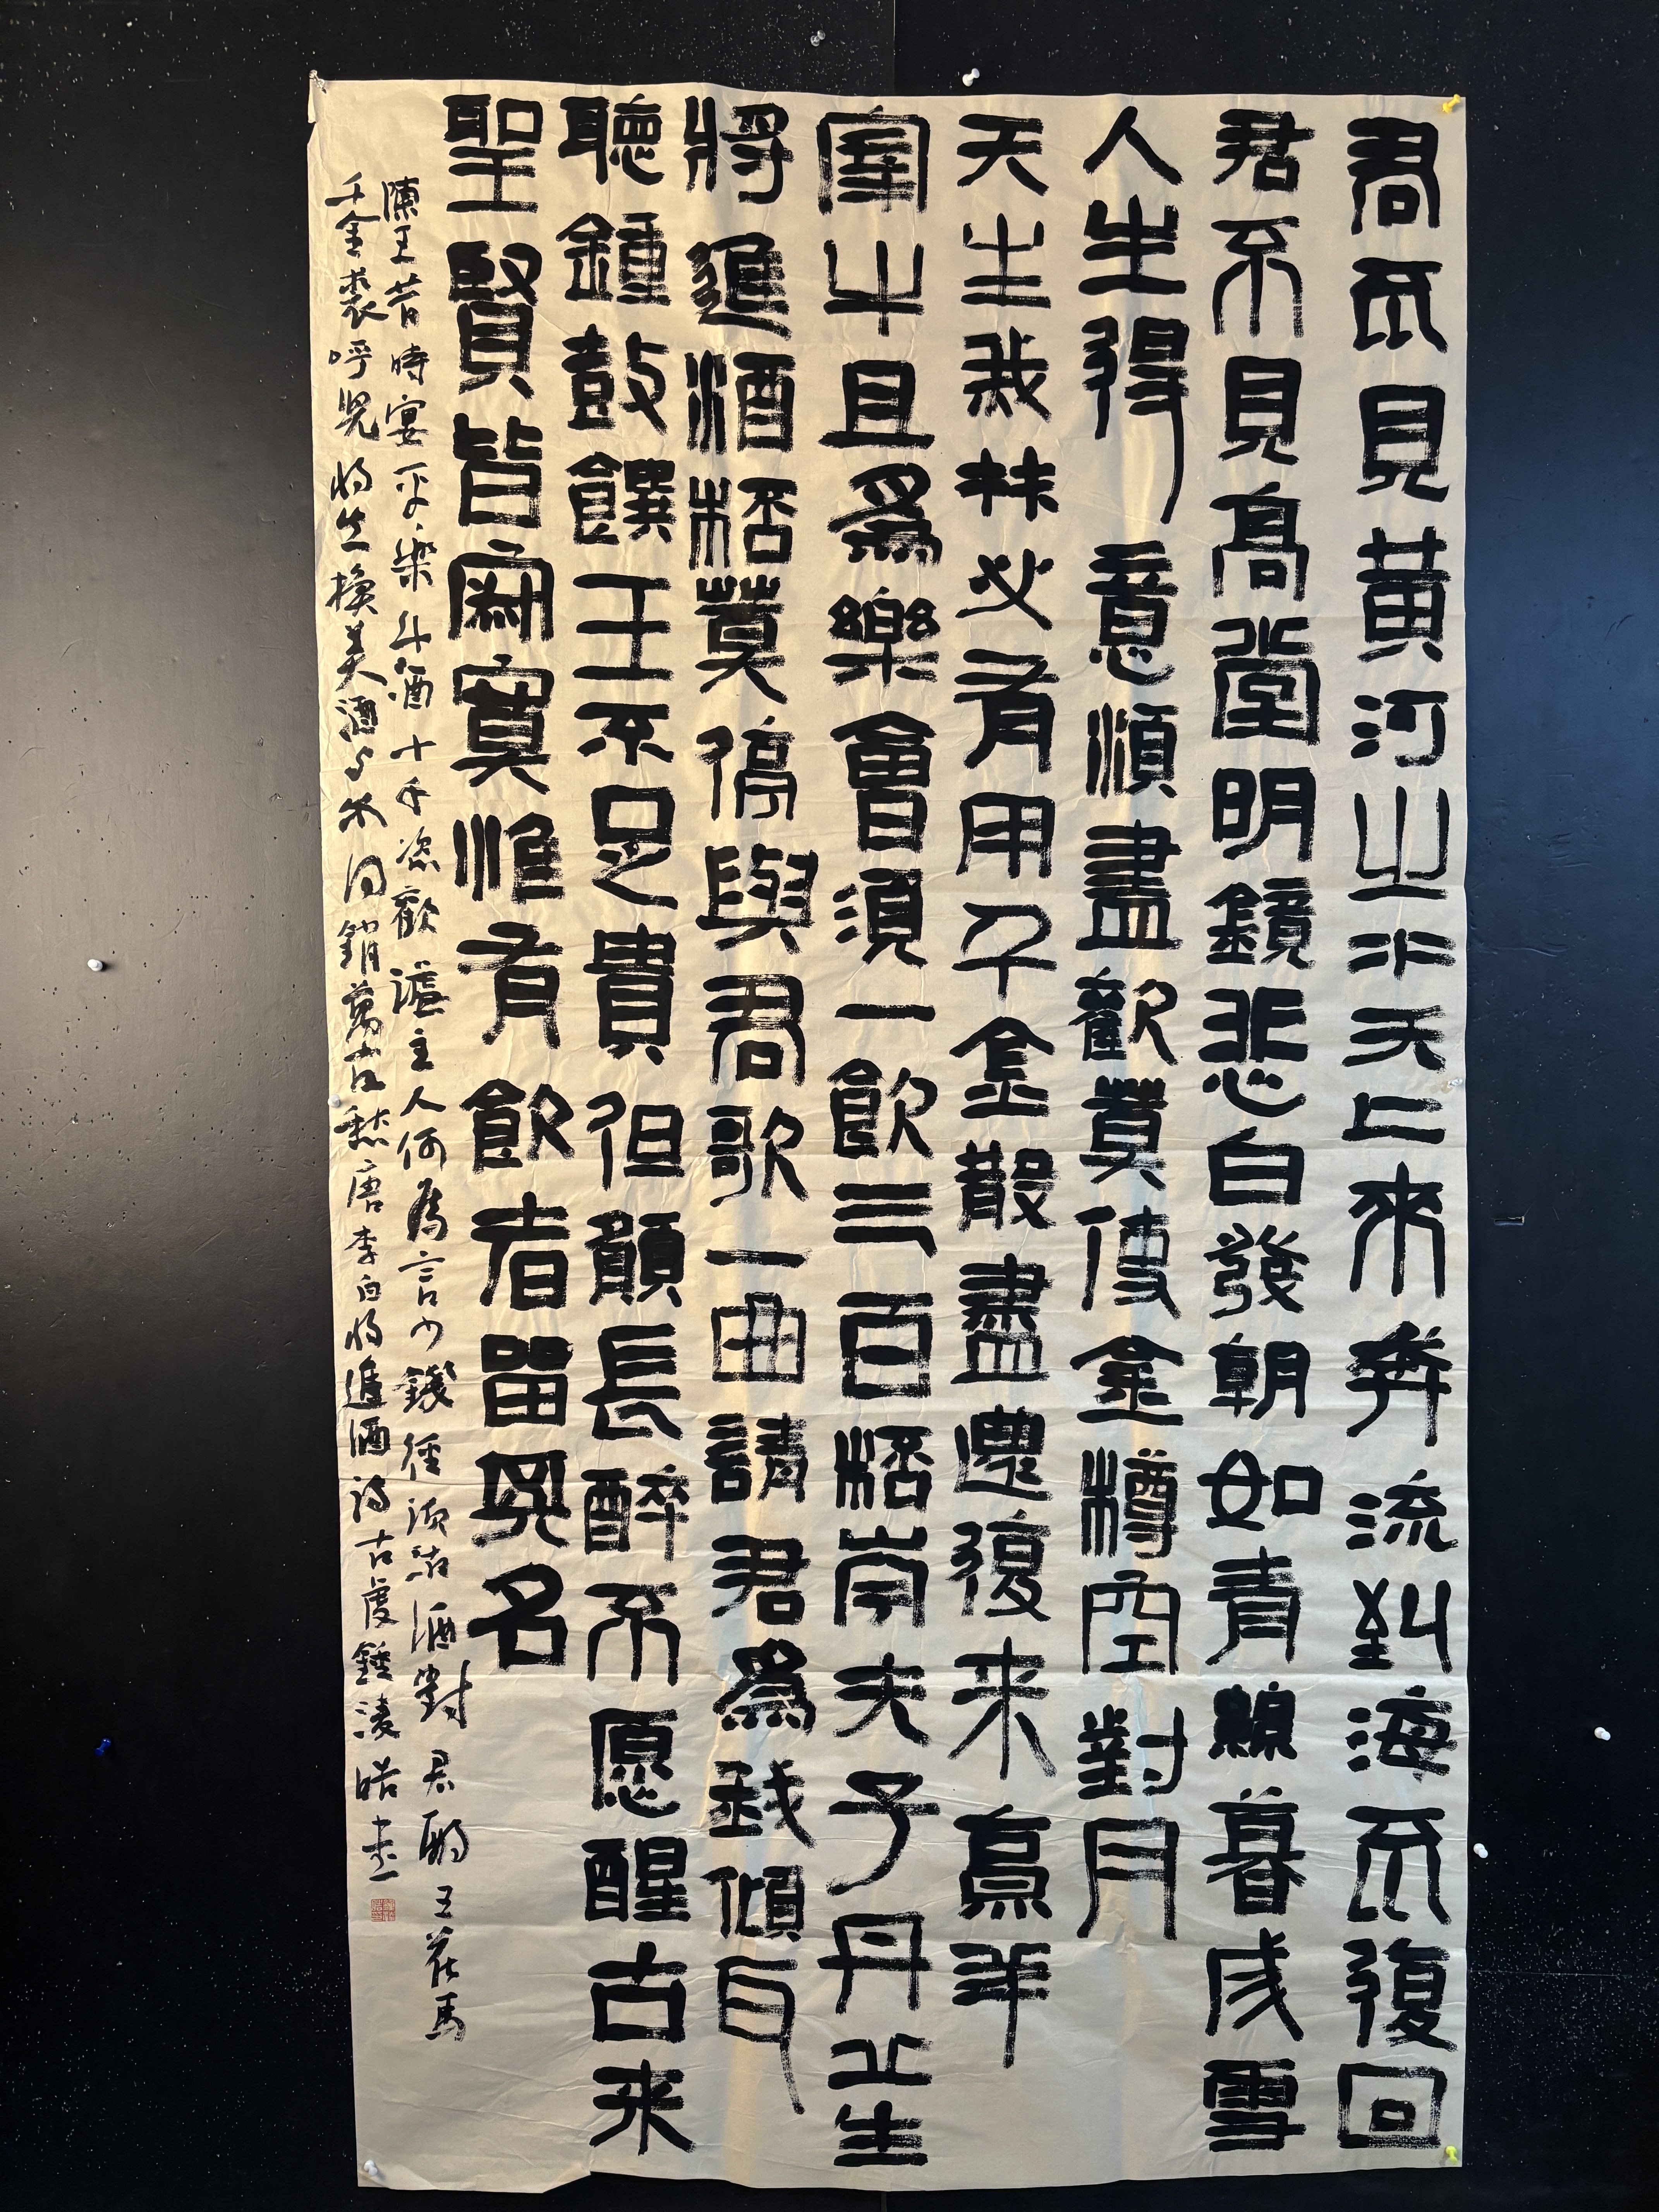 君不見黃河之水天上來奔流到海不復回
君不見高堂明鏡悲白發朝如青絲暮成雪
人生得意須盡歡莫使金樽空對月
天生我材必有用千金散盡還復來烹羊
宰牛且為樂會須一飲三百桮岑夫子丹丘生
將進酒桮莫停與君歌一曲請君為我傾耳
聽鐘鼓饌玉不足貴但願長醉不愿醒古來
聖賢皆寂寞惟有飲者留其名
陳王昔時宴平樂斗酒十千恣歡謔主人何為言少錢徑須沽酒對君酌五花馬
千金裘呼兒將出換美酒與爾同銷萬古愁唐李白將進酒詩古虞鍾淩皓書